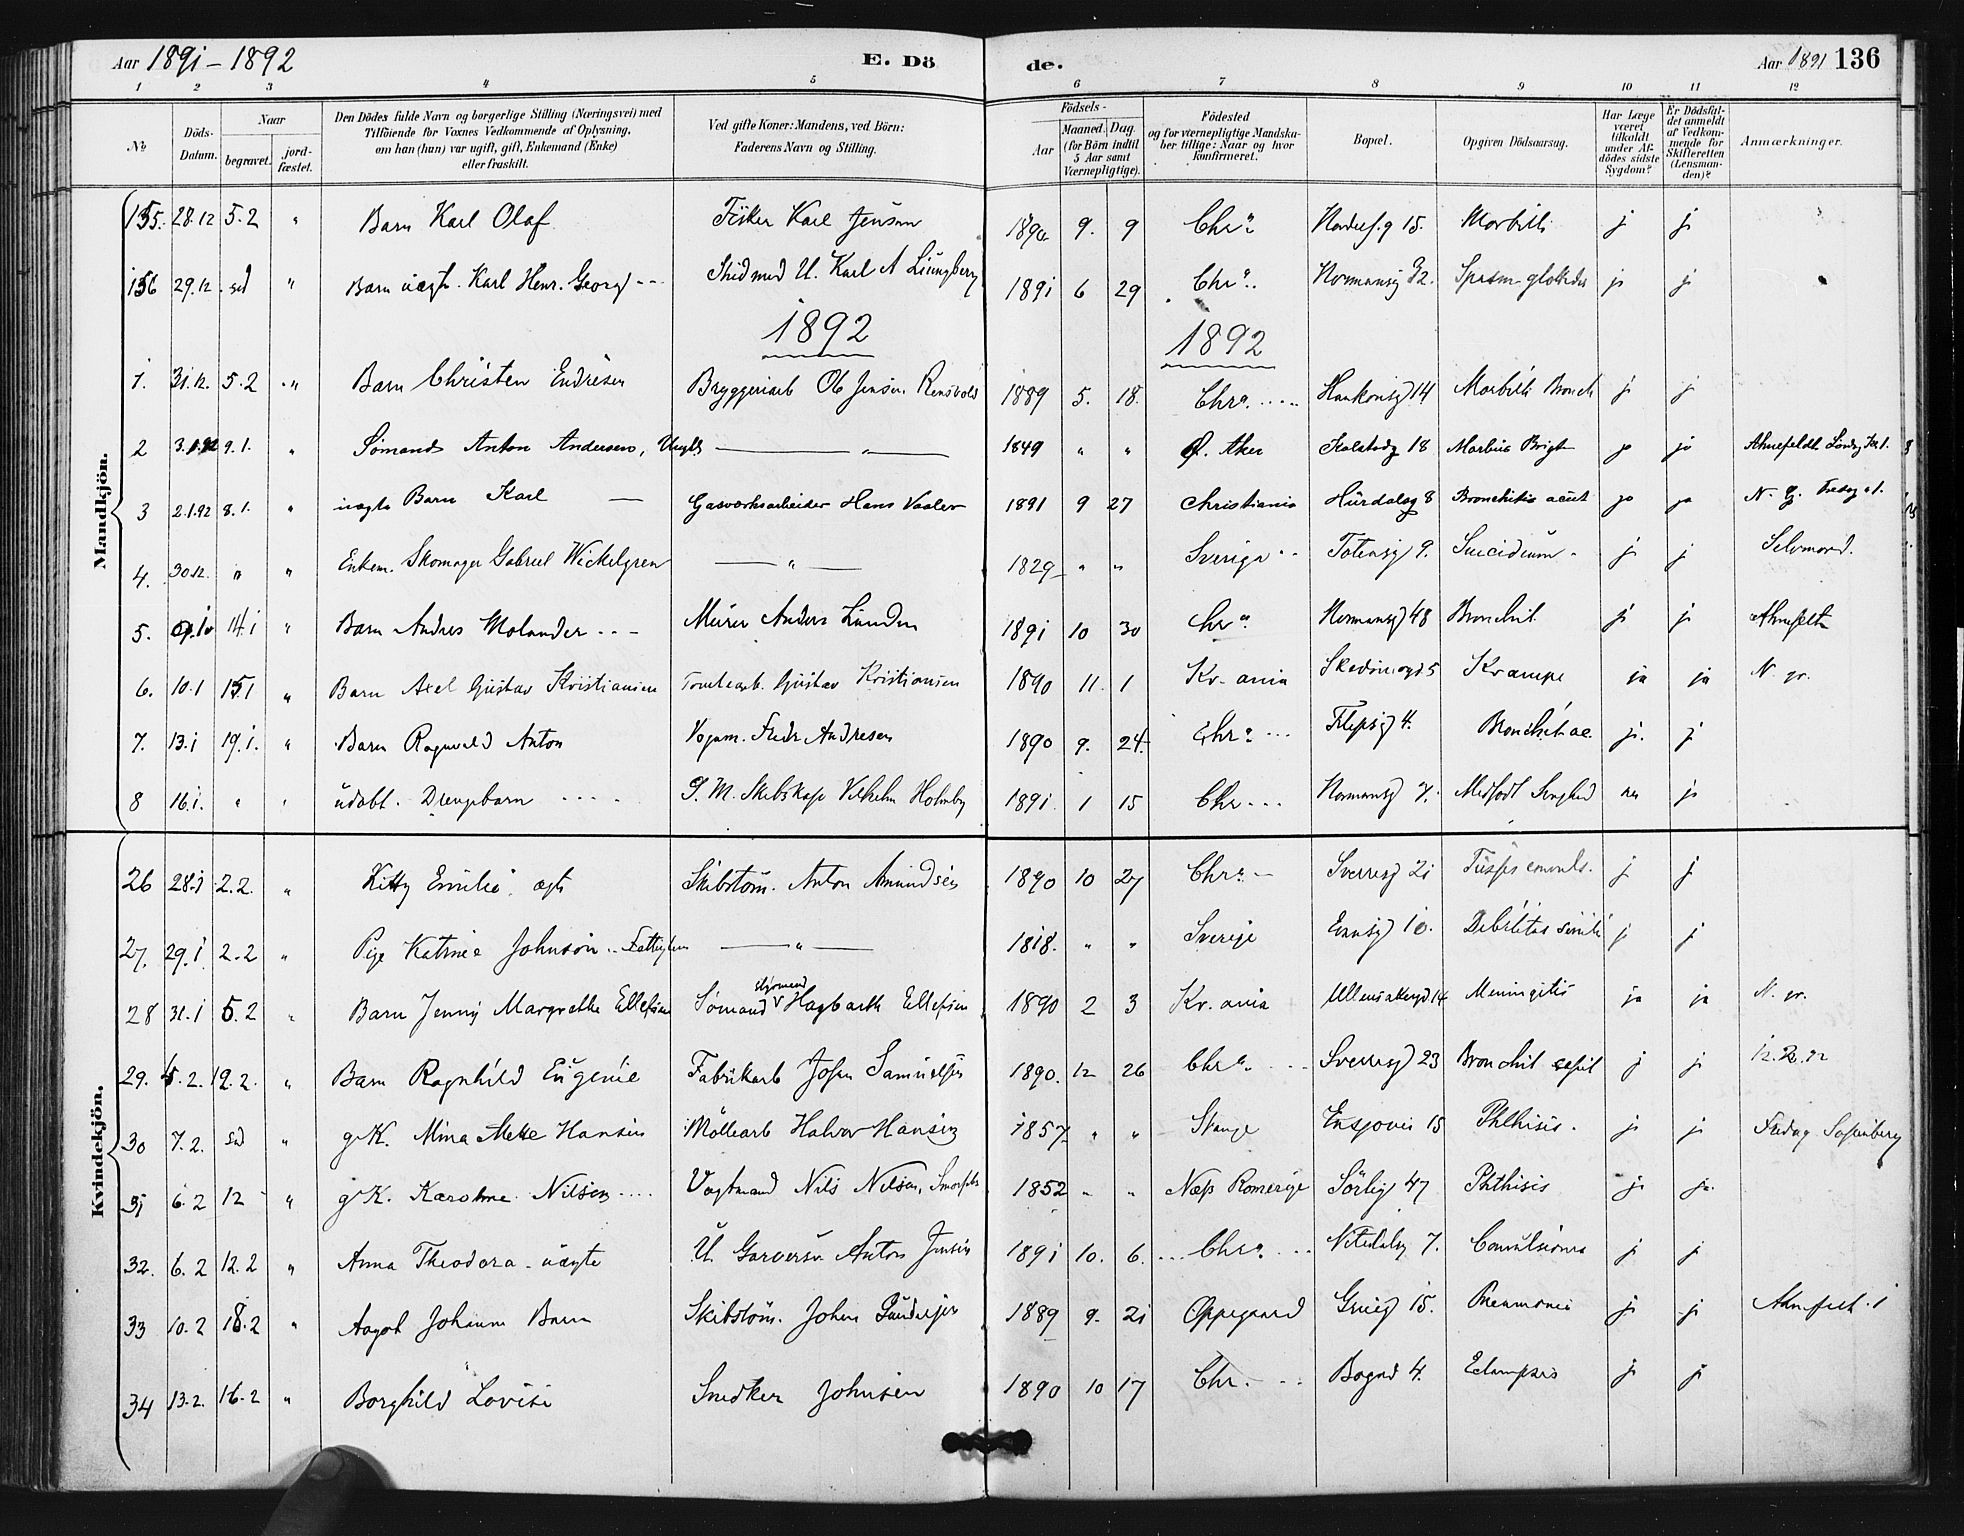 Aar 1891 - 1892 E. Dö de. Aar 1891 136
1 2 3 4 5 6 7 8 9 10 11 12
No
Döds-Datum.
Naar begravet. jord-fæstet.
Den Dödes fulde Navn og borgerlige Stilling (Næringsvei) med Tilföiende for Voxnes Vedkommende af Oplysning, om han (hun) var ugift, gift, Enkemand (Enke) eller fraskilt.
Ved gifte Koner: Mandens, ved Börn: Faderens Navn og Stilling.
Födsels- Aar Maaned. Dag. (for Börn indtil 5 Aar samt Værnepligtige).
Födested og for værnepligtige Mandskaber tillige: Naar og hvor konfirmeret.
Bopæl.
Opgiven Dödsaarsag.
Har Læge været tilkaldt under Afdödes sidste Sygdom?
Er Dödsfaldet anmeldt af Vedkommende for Skifteretten (Lensmanden)?
Anmærkninger.
Mandkjön.
155. 28.12 5.2 " Barn Karl Olaf Fisker Karl Jensen 1890 9. 9 Chra 15. Morbilli j j
156 29.12 sd " Barn uægte. Karl Henr. Georg -- U. Karl A Ljungberg 1891 6 29 Chra. Normansg 32. Spasm glottidis j j
1892 1892
1. 31.12. 5.2 " Barn Christen Endresen Bryggeriarb Ole Jensen 1889 5. 18. Chra. 14 Morbilli Bronch j j
2 3.1.92 9.1. " Sömand Anton Andersen, Ungk — " — 1849 " " Ø. Aker 18 Morbus Brigt ja ja
3 2.1.92 8.1. " uægte Barn Karl — Gasværksarbeider Hans Vaaler 1891 9 27 Christiania Hurdalsg 8 Bronchitis acut ja ja N. g.
4. 30.12. " " Enkem. Skomager Gabriel Wickelgren — " — 1829 " " Sverige Totensg 9. Suicidium j j Selvmord.
5. 9.1 14.1 " Barn Andres Molander -- Murer Anders Lunden 1891 10 30 Chra. Normansg 48 Bronchit. j j Ahnefeldt
6. 10.1 15.1 " Barn Axel Gustav Kristiansen Gustav Kristiansen 1890 11. 1 Kr.ania 5 Krampe ja ja N. gr.
7. 13.1 19.1. " Barn Ragnvald Anton Vognm. Fredr Andresen 1890 9. 24. Chra -- 4. Bronchit ac. j. j
8 16.1. " " udøbt. Drengebarn ---- Vilhelm Holmby 1891. 1 15 Chr -- Normansg 7. Medfödt nei j
Kvindekjön.
26 28.1 2.2. " Kitty Emilie. ægte Skibstöm. Anton Amundsen 1890 10 27 Chra. - Sverresg 21 j j
27. 29.1. 2.2 " Pige Katrine Johnson — " — 1818. " " Sverige Ensjg 10. Debilitas senilis j j
28 31.1 5.2 " Barn Jenny Margrethe Ellefsen Sömand styrmand Hagbarth Ellefsen 1890 2 3 Kr.ania Ullensakergd 14 Meningitis ja ja N. gr.
29. 5.2. 12.2. " Barn Ragnhild Eugenie Fabrikarb Johan Samuelsen 1890. 12 26 Chra. -- Sverresg 23 Bronchit j j
30 7.2. sd " g.K. Mina Mette Hansen Möllearb Halvor Hansen 1857 " " Stange Ensjøvei 15 Phthisis. j j Fredag Sofienberg
31 6.2 12 " g.K. Karoline Nilsen ---- Vogtmand Nils Nilsen, 1852 " " Næs Romerige Sörlig 47 Phthisis j. ja.
32. 6.2 12.2 " Anna Theodora - uægte U. Garversv Anton Jensen 1891 10. 6. Chra. -- Nitedalsg 7. Convulsiones j j
33 10.2 18.2 " Aagot Johanne Barn Skibstöm. Johan 1889 9. 21 Oppegaard 15. Pneumonia j j
34 13.2. 16.2 " Borghild Lovise Snedker Johnsen 1890 10 17 Chr. -- 4. Eclampsis j j